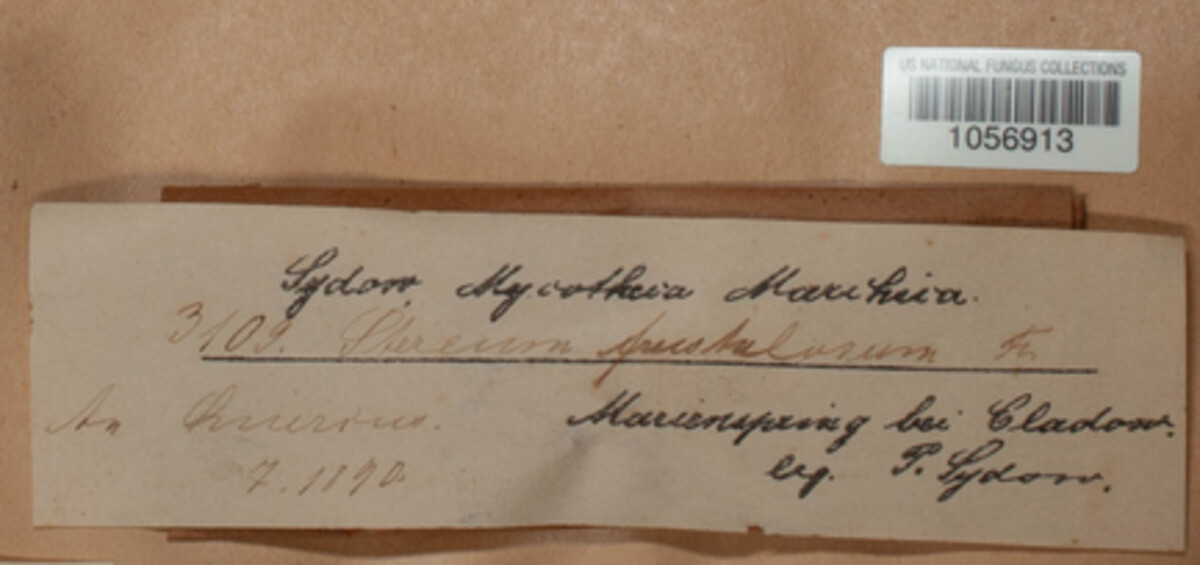 US NATIONAL FUNGUS COLLECTIONS
1056913
Sydow, Mycotheca Marchica.
3109. Stereum pustulosum Fr.
An Quercus.
Marienspring bei Cladow.
7. 1890.
leg. P. Sydow.